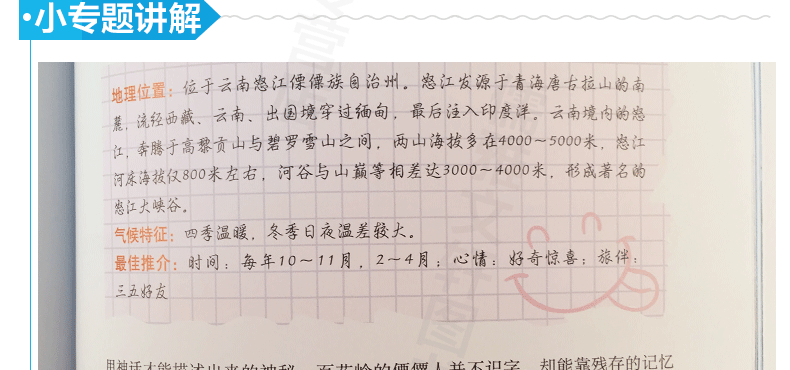 ·小专题讲解
地理位置：位于云南怒江傈僳族自治州。怒江发源于青海唐古拉山的南
麓，流经西藏、云南、出国境穿过缅甸，最后注入印度洋。云南境内的怒
江，奔腾于高黎贡山与碧罗雪山之间，两山海拔多在4000～5000米，怒江
河床海拔仅800米左右，河谷与山巅等相差达3000～4000米，形成著名的
怒江大峡谷。
气候特征：四季温暖，冬季日夜温差较大。
最佳推介：时间：每年10～11月，2～4月；心情：好奇惊喜；旅伴：
三五好友
用神话才能描述出来的神秘。而花岭的傈僳人并不识字，却能靠残存的记忆